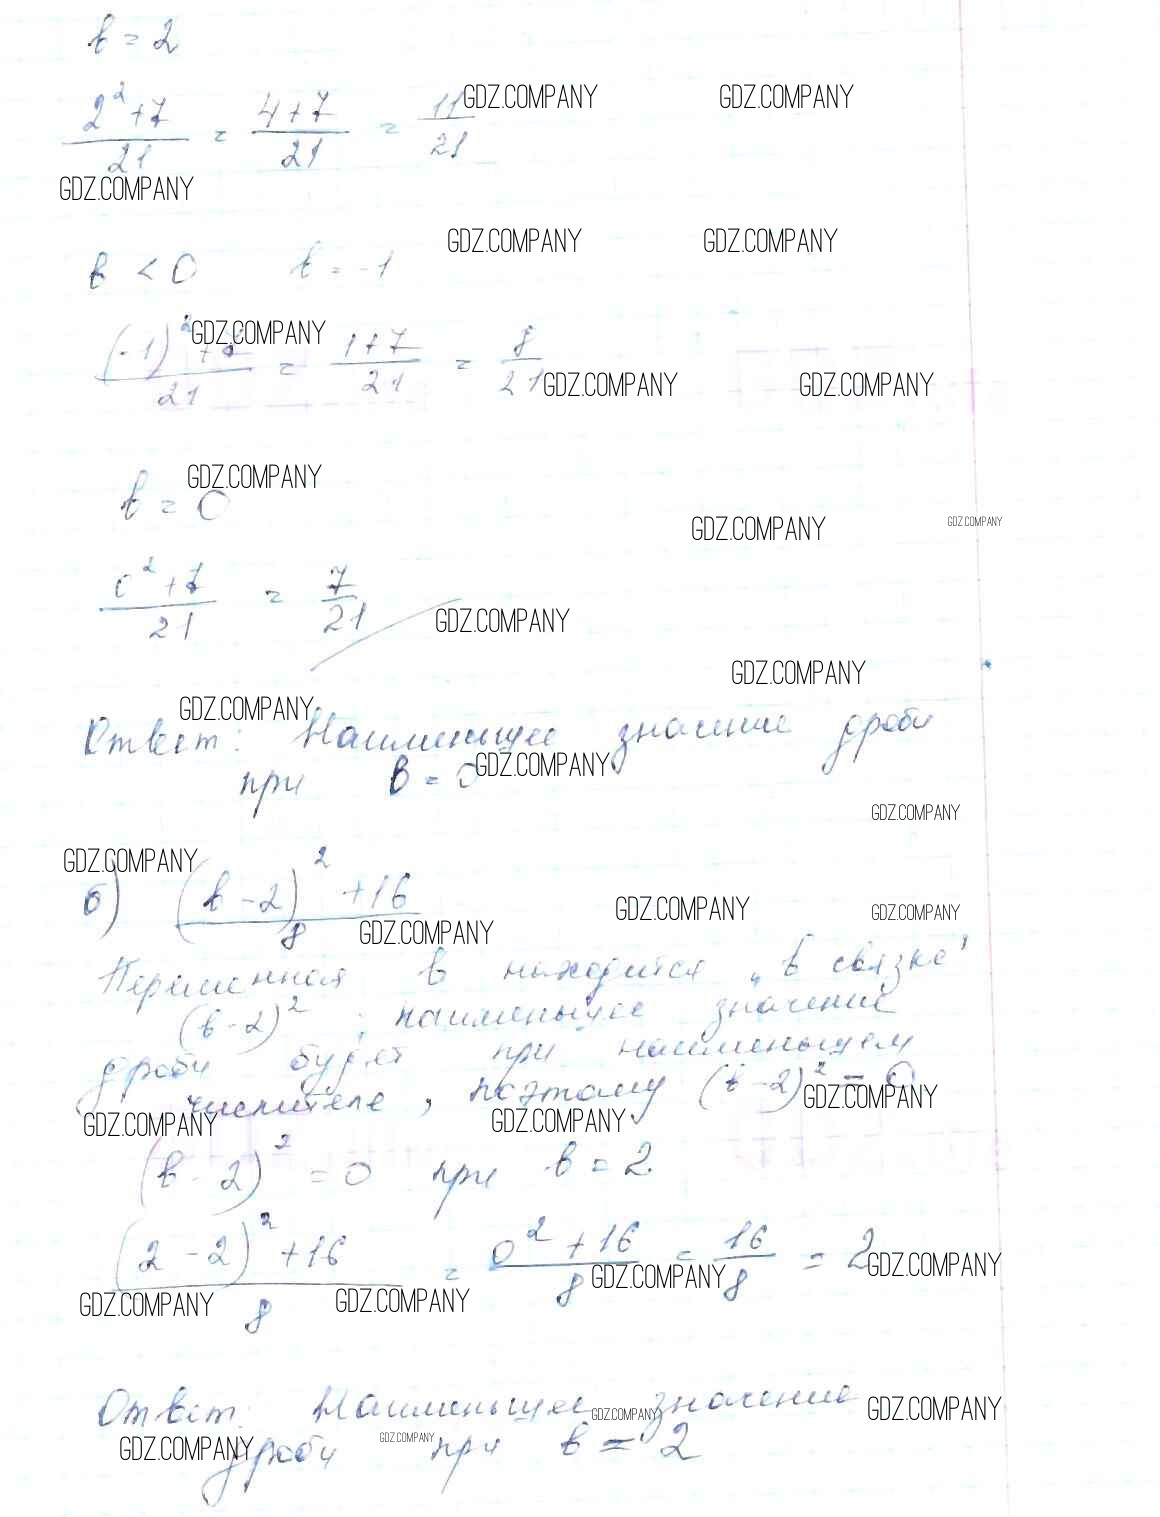 b = 2
(2² + 7)/21 = (4 + 7)/21 = 11/21
GDZ.COMPANY GDZ.COMPANY
GDZ.COMPANY
GDZ.COMPANY GDZ.COMPANY
b < 0 b = -1
GDZ.COMPANY
((-1)² + 7)/21 = (1 + 7)/21 = 8/21
GDZ.COMPANY GDZ.COMPANY
GDZ.COMPANY
b = 0
GDZ.COMPANY GDZ.COMPANY
(0² + 7)/21 = 7/21
GDZ.COMPANY
GDZ.COMPANY
GDZ.COMPANY
Ответ: Наименьшее значение дроби
при b = 0
GDZ.COMPANY
GDZ.COMPANY
GDZ.COMPANY
б) ((b - 2)² + 16)/8
GDZ.COMPANY GDZ.COMPANY
GDZ.COMPANY
Переменная b находится „в связке"
(b - 2)², наименьшее значение
дроби будет при наименьшем
числителе, поэтому (b - 2)² = 0
GDZ.COMPANY
GDZ.COMPANY GDZ.COMPANY
(b - 2)² = 0 при b = 2
((2 - 2)² + 16)/8 = (0² + 16)/8 = 16/8 = 2
GDZ.COMPANY
GDZ.COMPANY
GDZ.COMPANY GDZ.COMPANY
Ответ: Наименьшее значение
GDZ.COMPANY GDZ.COMPANY
дроби при b = 2
GDZ.COMPANY GDZ.COMPANY